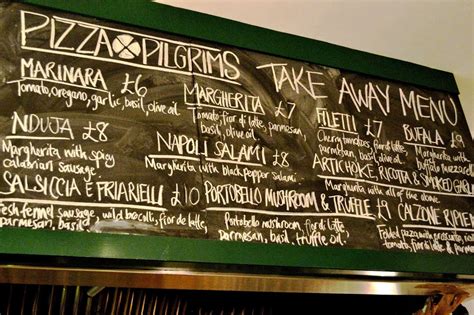 PIZZA PILGRIMS
TAKE AWAY MENU
MARINARA £6
Tomato, oregano, garlic, basil, olive oil.
NDUJA £8
Margherita with spicy
calabrian sausage
SALSICCIA E FRIARIELLI £10
fresh fennel sausage, wild broccoli, fior de latte,
parmesan, basil
MARGHERITA £7
Tomato, fior di latte, parmesan,
basil, olive oil.
NAPOLI SALAMI £8
Margherita with black pepper salami.
PORTOBELLO MUSHROOM & TRUFFLE £9
Portobello mushroom, fior di latte,
parmesan, basil, truffle oil.
FILETTI £7
Cherry tomatoes, fior di latte,
parmesan, basil, olive oil
ARTICHOKE, RICOTTA & SMOKED
Margherita with all of the above
BUFALA £9
Margherita with
buffalo mozzarella
CALZONE RIPIE
Folded pizza with prosciutto,
tomato, fior di latte & parmesan